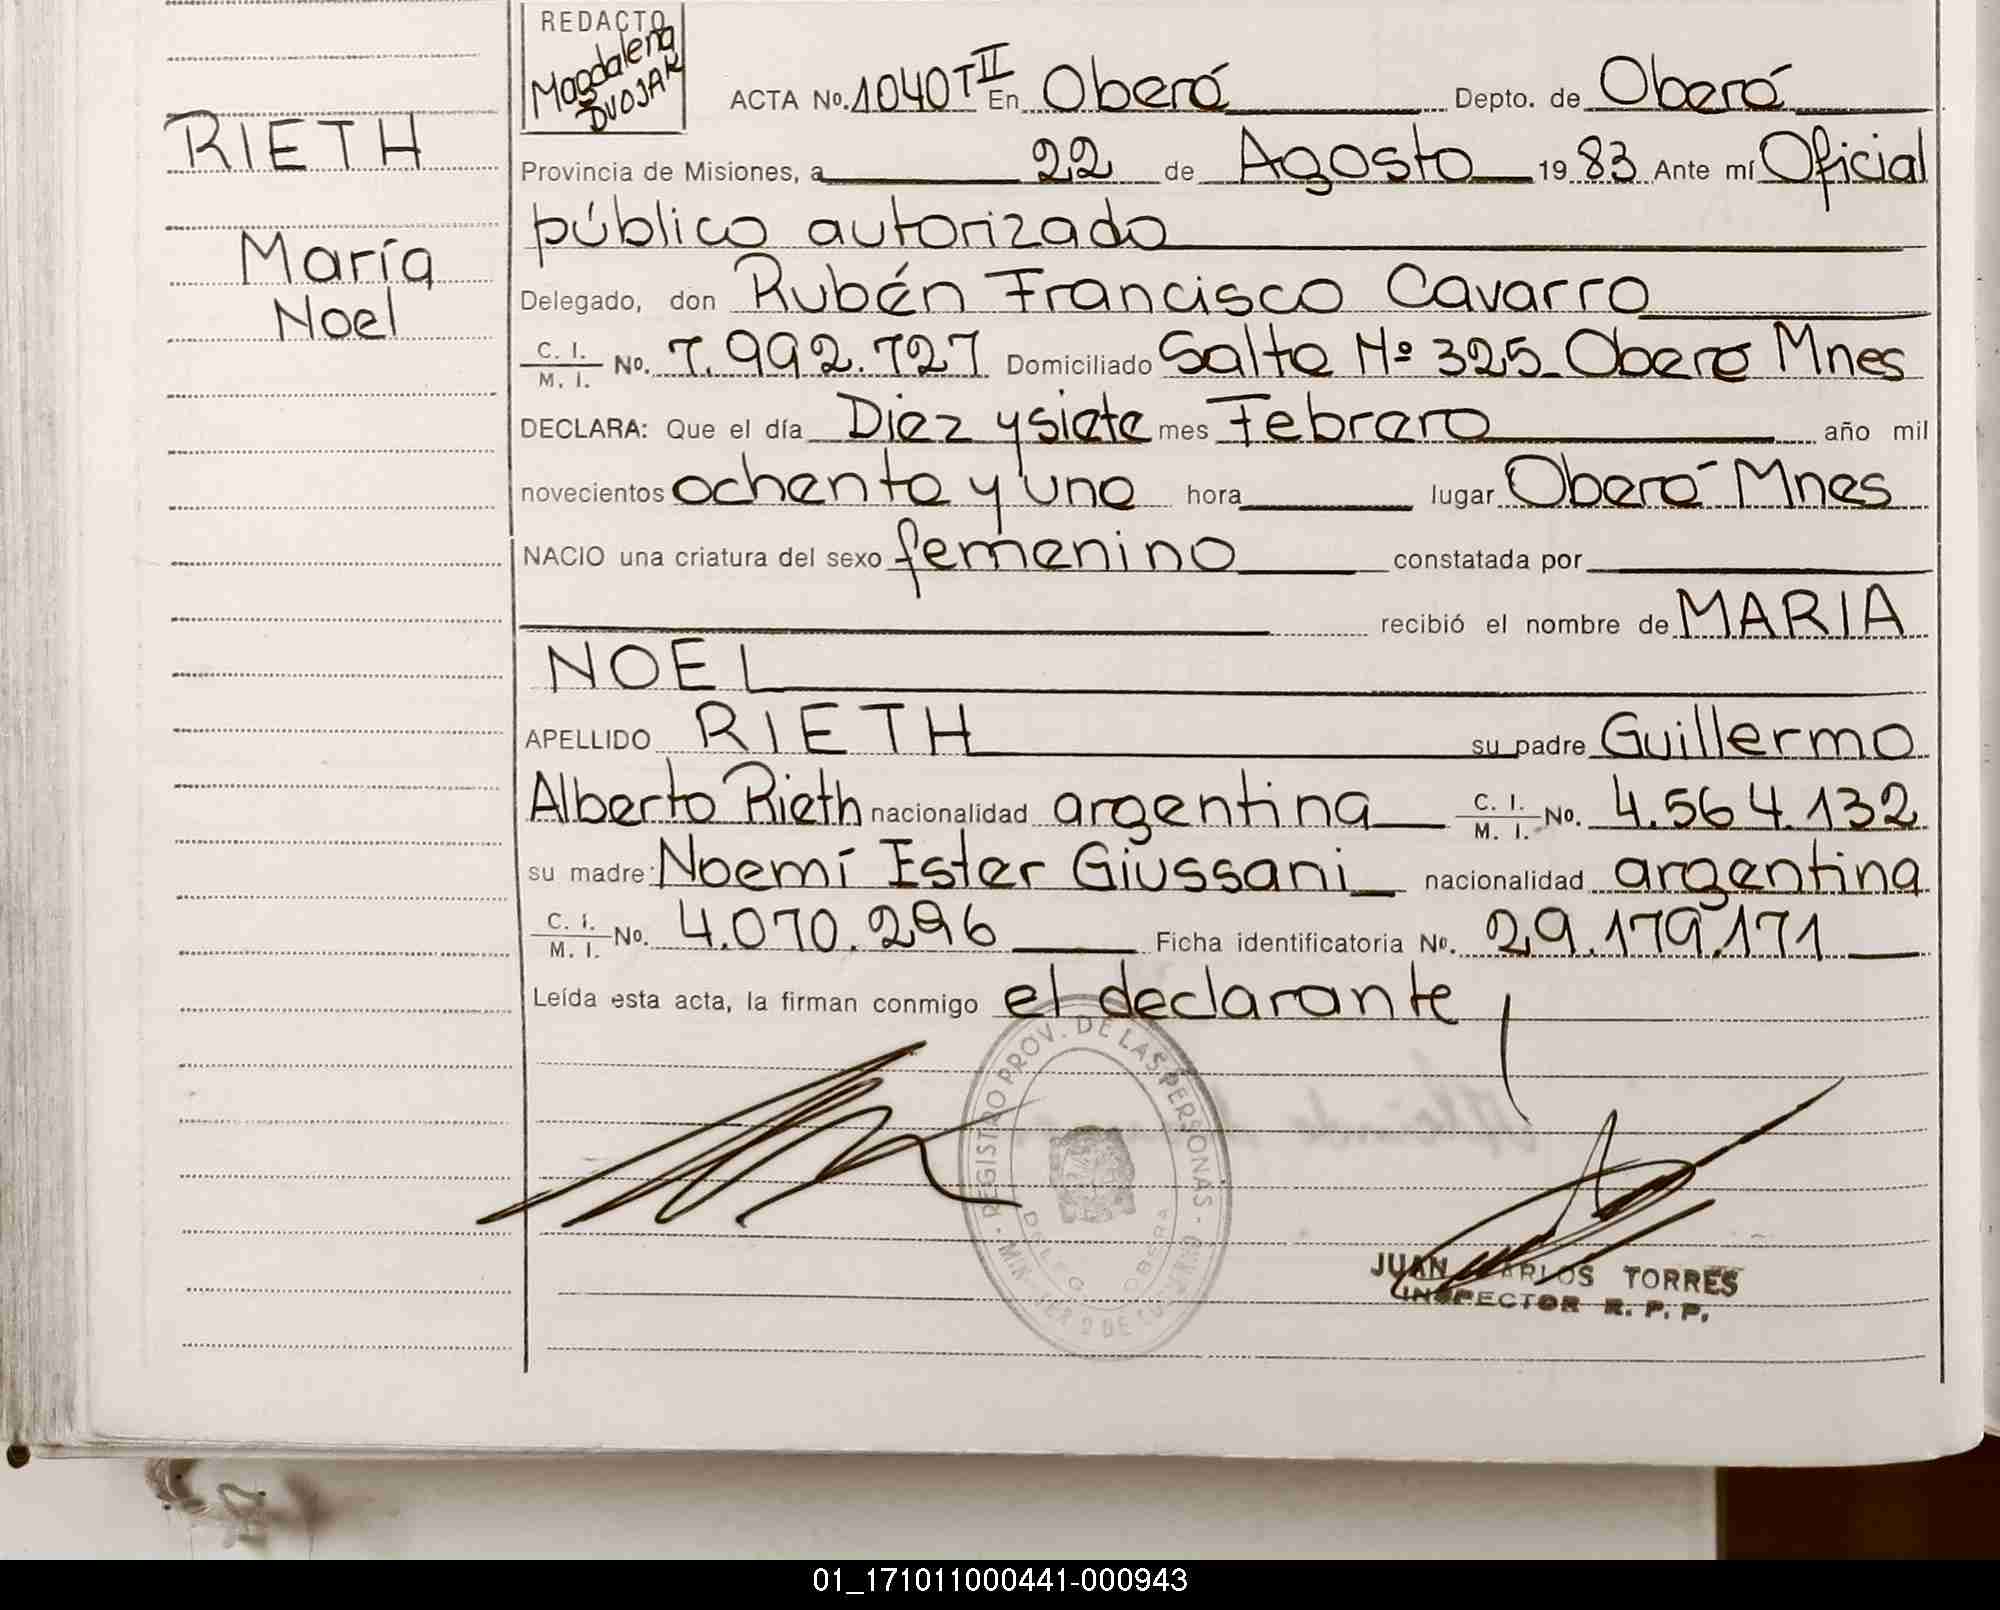 REDACTO
Magdalena
DUOJAK
RIETH
María
Noel
ACTA No. 1040 T II En Oberá Depto. de Oberá
Provincia de Misiones, a 22 de Agosto 1983 Ante mí Oficial
público autorizado
Delegado, don Rubén Francisco Cavarro
C. I. / M. I. No. 7.992.727 Domiciliado Salta Nº 325 Oberá Mnes
DECLARA: Que el día Diez y siete mes Febrero año mil
novecientos ochenta y uno hora lugar Oberá Mnes
NACIO una criatura del sexo femenino constatada por
recibió el nombre de MARIA
NOEL
APELLIDO RIETH su padre Guillermo
Alberto Rieth nacionalidad argentina C. I. / M. I. No. 4.564.132
su madre Noemí Ester Giussani nacionalidad argentina
C. I. / M. I. No. 4.070.296 Ficha identificatoria No. 29.179.171
Leída esta acta, la firman conmigo el declarante
REGISTRO PROV. DE LAS PERSONAS
DELEG. OBERA
JUAN CARLOS TORRES
INSPECTOR R. P. P.
01_171011000441-000943